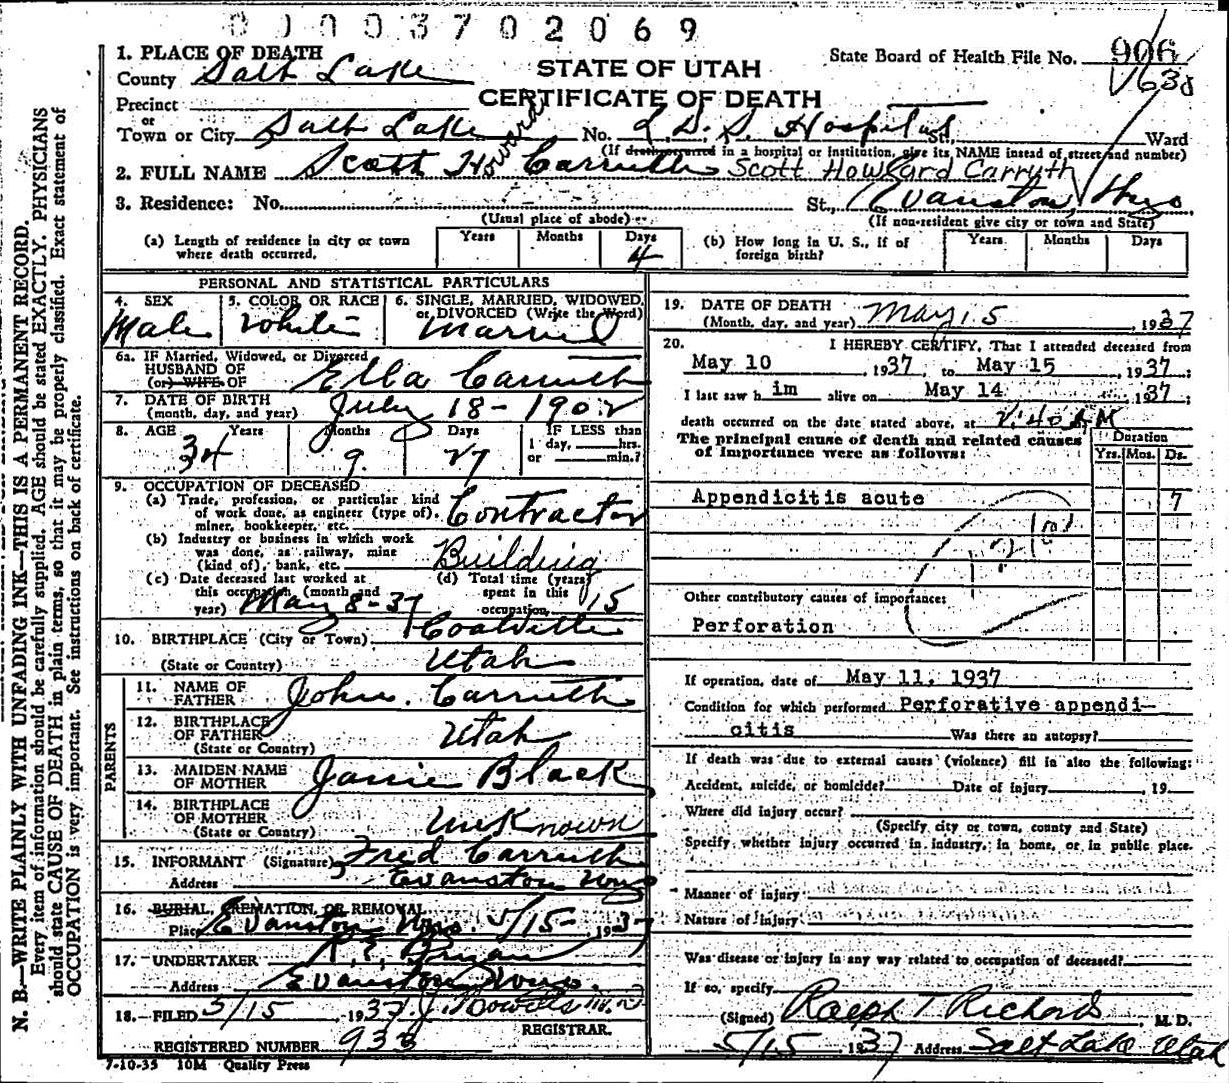 00003702069
1. PLACE OF DEATH
County Salt Lake
STATE OF UTAH
State Board of Health File No. 906
V63d
CERTIFICATE OF DEATH
Precinct
or
Town or City Salt Lake No. L. D. S. Hospital St., Ward
(If death occurred in a hospital or institution, give its NAME instead of street and number)
2. FULL NAME Scott Howard Carruth Scott Howard Carruth
3. Residence: No. St., Evanston, Wyo.
(Usual place of abode) (If non-resident give city or town and State)
(a) Length of residence in city or town where death occurred. Years Months Days 4
(b) How long in U. S., if of foreign birth? Years Months Days
PERSONAL AND STATISTICAL PARTICULARS
4. SEX Male
5. COLOR OR RACE White
6. SINGLE, MARRIED, WIDOWED, or DIVORCED (Write the Word) Married
6a. IF Married, Widowed, or Divorced
HUSBAND OF
(or) WIFE OF Ella Carruth
7. DATE OF BIRTH
(month, day, and year) July 18-1902
8. AGE Years 34 Months 9 Days 27
IF LESS than
1 day, hrs.
or min.?
9. OCCUPATION OF DECEASED
(a) Trade, profession, or particular kind of work done, as engineer (type of), miner, bookkeeper, etc. Contractor
(b) Industry or business in which work was done, as railway, mine (kind of), bank, etc. Building
(c) Date deceased last worked at this occupation (month and year) May 8-37
(d) Total time (years) spent in this occupation 15
10. BIRTHPLACE (City or Town) Coalville
(State or Country) Utah
PARENTS
11. NAME OF FATHER John Carruth
12. BIRTHPLACE OF FATHER (State or Country) Utah
13. MAIDEN NAME OF MOTHER Janie Black
14. BIRTHPLACE OF MOTHER (State or Country) Unknown
15. INFORMANT (Signature) Fred Carruth
Address Evanston Wyo
16. BURIAL, CREMATION, OR REMOVAL
Place Evanston Wyo. 5/15- 1937
17. UNDERTAKER R. E. Bryan
Address Evanston Wyo.
18. FILED 5/15 1937 M.D.
REGISTRAR.
REGISTERED NUMBER 933
7-10-35 10M Quality Press
19. DATE OF DEATH
(Month, day, and year) May 15, 1937
20. I HEREBY CERTIFY, That I attended deceased from
May 10, 1937, to May 15, 1937;
I last saw him alive on May 14 1937;
death occurred on the date stated above, at 2:40 A M
The principal cause of death and related causes of importance were as follows:
Duration
Yrs. Mos. Ds.
Appendicitis acute 7
Other contributory causes of importance:
Perforation
If operation, date of May 11, 1937
Condition for which performed Perforative appendi-
citis Was there an autopsy?
If death was due to external causes (violence) fill in also the following:
Accident, suicide, or homicide? Date of injury, 19
Where did injury occur?
(Specify city or town, county and State)
Specify whether injury occurred in industry, in home, or in public place.
Manner of injury
Nature of injury
Was disease or injury in any way related to occupation of deceased?
If so, specify
(Signed) Ralph T Richards, M. D.
5/15 1937 Address Salt Lake Utah
N. B.—WRITE PLAINLY WITH UNFADING INK—THIS IS A PERMANENT RECORD.
Every item of information should be carefully supplied. AGE should be stated EXACTLY. PHYSICIANS
should state CAUSE OF DEATH in plain terms, so that it may be properly classified. Exact statement of
OCCUPATION is very important. See instructions on back of certificate.